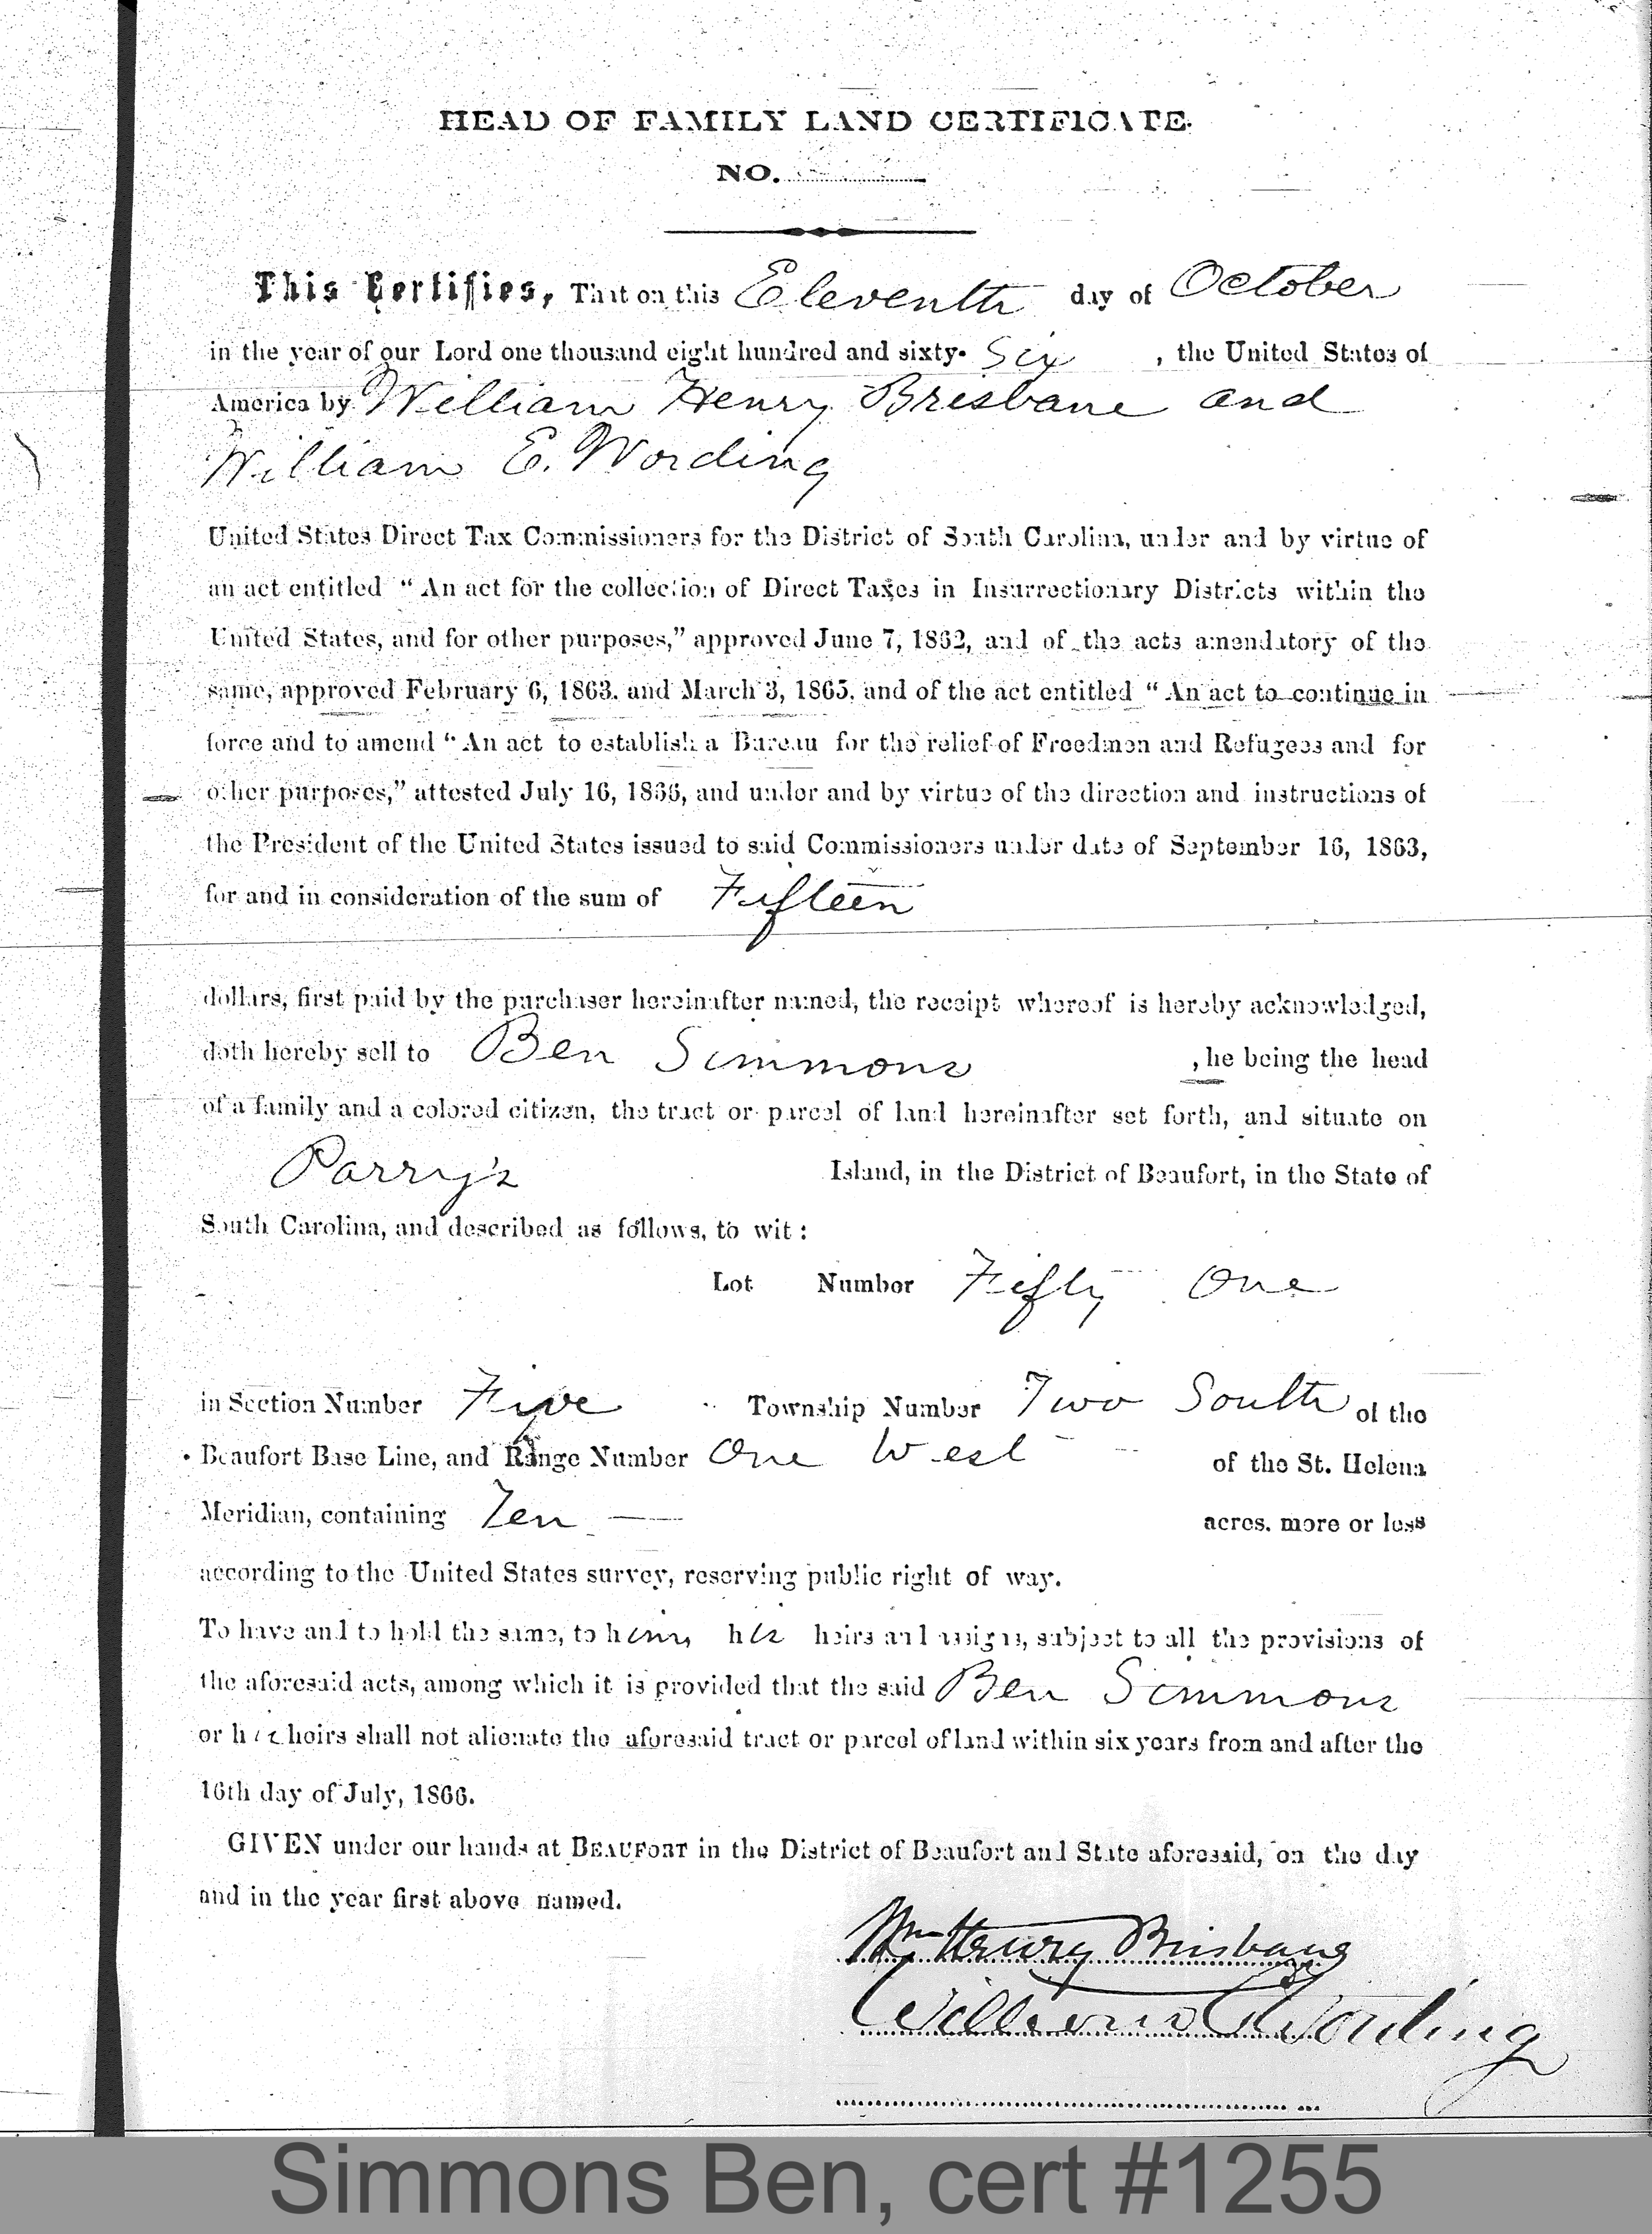 HEAD OF FAMILY LAND CERTIFICATE.
NO.
This Certifies, That on this Eleventh day of October
in the year of our Lord one thousand eight hundred and sixty- Six , the United States of
America by William Henry Brisbane and
William E. Wording
United States Direct Tax Commissioners for the District of South Carolina, under and by virtue of
an act entitled "An act for the collection of Direct Taxes in Insurrectionary Districts within the
United States, and for other purposes," approved June 7, 1862, and of the acts amendatory of the
same, approved February 6, 1863. and March 3, 1865, and of the act entitled "An act to continue in
force and to amend "An act to establish a Bureau for the relief of Freedmen and Refugees and for
other purposes," attested July 16, 1866, and under and by virtue of the direction and instructions of
the President of the United States issued to said Commissioners under date of September 16, 1863,
for and in consideration of the sum of Fifteen
dollars, first paid by the purchaser hereinafter named, the receipt whereof is hereby acknowledged,
doth hereby sell to Ben Simmons , he being the head
of a family and a colored citizen, the tract or parcel of land hereinafter set forth, and situate on
Parry's Island, in the District of Beaufort, in the State of
South Carolina, and described as follows, to wit:
Lot Number Fifty One
in Section Number Five Township Number Two South of the
Beaufort Base Line, and Range Number One West of the St. Helena
Meridian, containing Ten — acres. more or less
according to the United States survey, reserving public right of way.
To have and to hold the same, to him, his heirs and assigns, subject to all the provisions of
the aforesaid acts, among which it is provided that the said Ben Simmons
or his heirs shall not alienate the aforesaid tract or parcel of land within six years from and after the
16th day of July, 1866.
GIVEN under our hands at BEAUFORT in the District of Beaufort and State aforesaid, on the day
and in the year first above named.
Wm Henry Brisbane
William E Wording
Simmons Ben, cert #1255